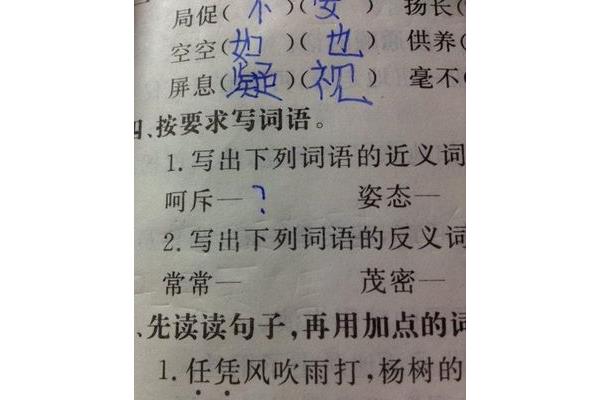 局促(不)(安) 扬长(
空空(如)(也) 供养(
屏息(凝)(视) 毫不(
四、按要求写词语。
1.写出下列词语的近义词
呵斥—? 姿态—
2.写出下列词语的反义词
常常— 茂密—
、先读读句子,再用加点的词
1.任凭风吹雨打,杨树的